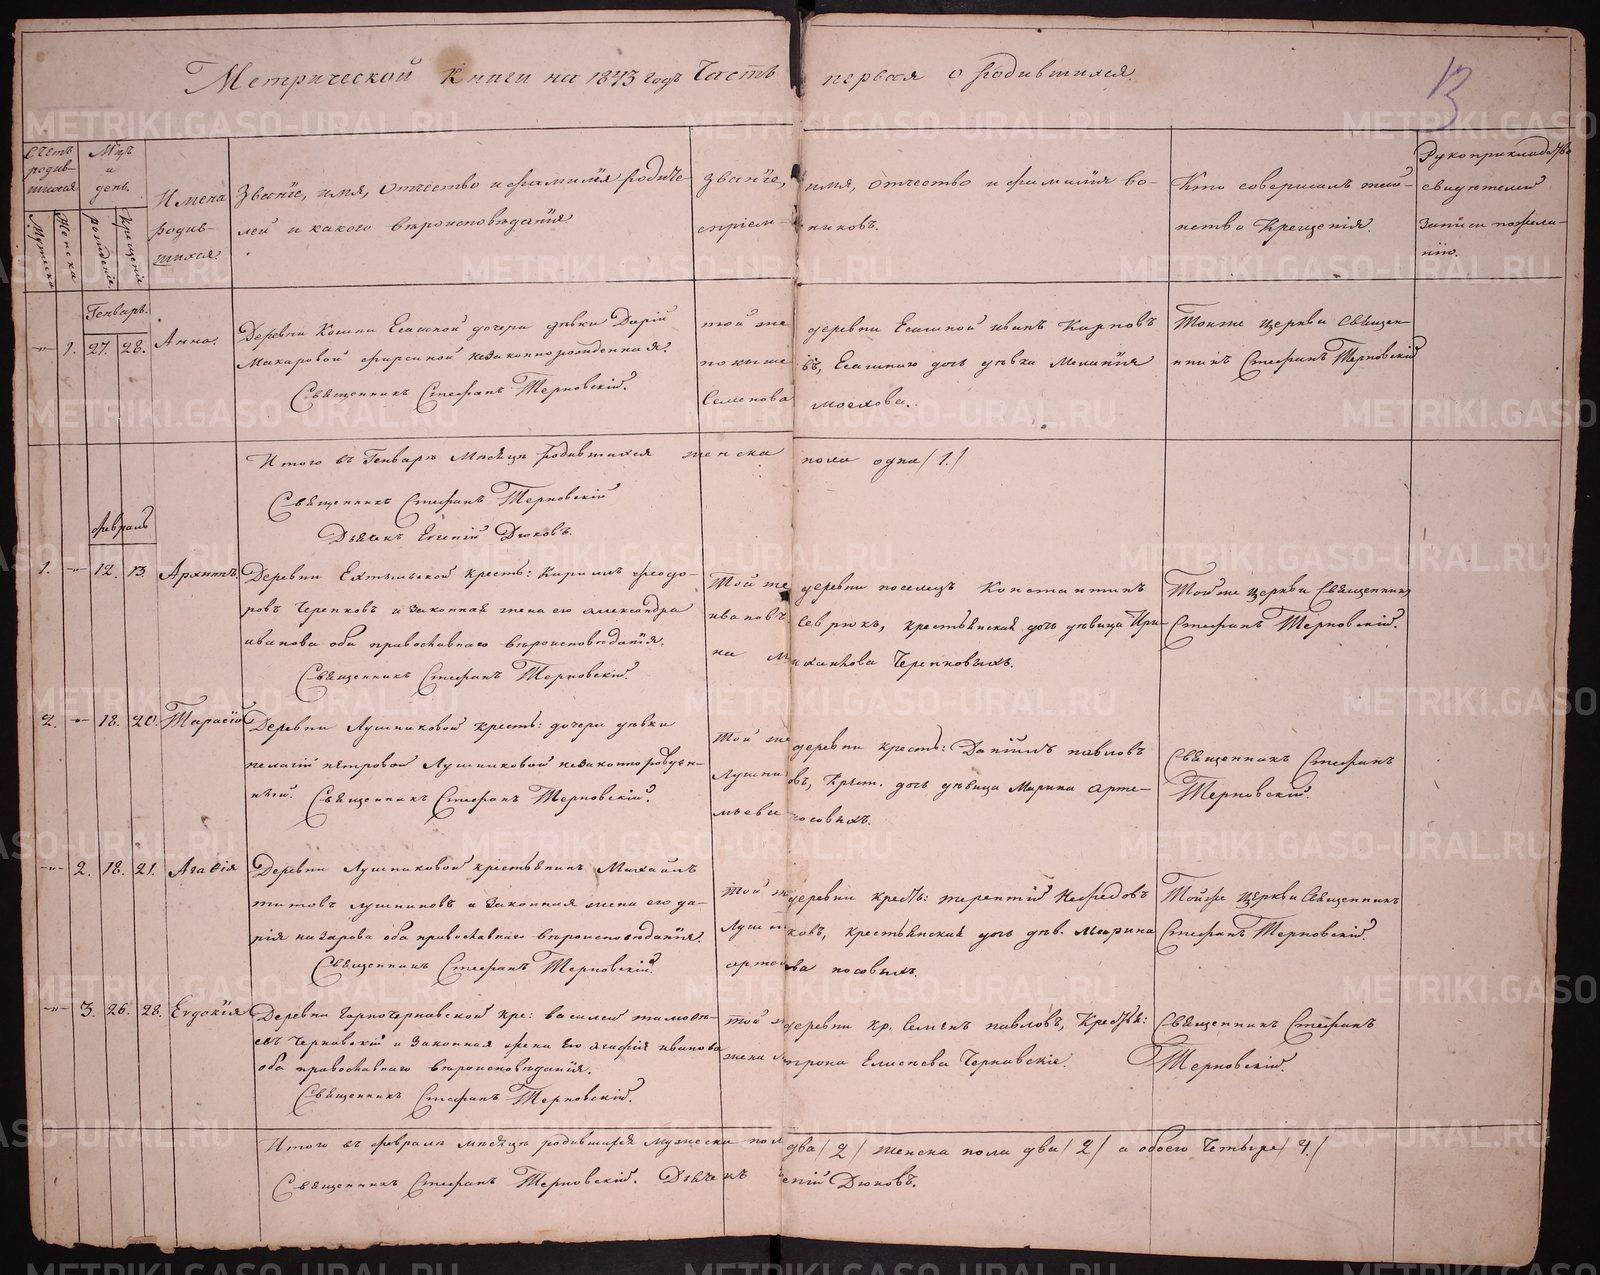 Метрической книги на 1843 годъ Часть первая о родившихся.
13
Счетъ родив-шихся
Мужеска
Женска
М-цъ и день.
рожденія
крещенія
Имена родив-шихся.
Званіе, имя, отчество и фамилія родите-
лей и какого вѣроисповѣданія
Званіе, имя, отчество и фамилія во-
спріем-никовъ.
Кто совершалъ таин-
ство Крещенія.
Рукоприкладство
свидѣтелей
записи по жела-
нію.
Генварь.
-"- 1. 27. 28. Анна.
Деревни Есашной дочери дѣвки Дарьи
Макаровой незаконнорожденная.
Священникъ Стефанъ Терновскій.
той же деревни Есашной иванъ Карповъ
Есашнаго дочь дѣвка Меланія
Семенова
Тояже церкви Священ-
никъ Стефанъ Терновскій
Итого въ Генварѣ Мѣсяцѣ родившихся женска пола одна /1./
Священникъ Стефанъ Терновскій
Дьячекъ Евгеній Дюковъ.
Февраль
1. -"- 12. 13. Архиппъ.
Деревни крестъ: Кириллъ Феодо-
ровъ Черепковъ и законная жена его александра
иванова оба православнаго вѣроисповѣданія.
Священникъ Стефанъ Терновскій.
Той же деревни поселецъ Константинъ
ивановъ Севрюкъ, крестьянская дочь дѣвица Ири-
на Михайлова Черепковыхъ.
Тойже церкви Священникъ
Стефанъ Терновскій.
2. -"- 18. 20. Тарасій
Деревни Лушниковой крестъ: дочери дѣвки
пелагіи петровой Лушниковой незаконнорожден-
ный. Священникъ Стефанъ Терновскій.
Той же деревни крестъ: Даніилъ павловъ
Лушниковъ, Крест. дочь дѣвица Марина Арте-
мьева носовыхъ.
Священникъ Стефанъ
Терновскій.
-"- 2. 18. 21. Агафія
Деревни Лушниковой крестьянинъ Михаилъ
титовъ лушниковъ и законная жена его да-
рія назарова оба православнаго вѣроисповѣданія.
Священникъ Стефанъ Терновскій.
той же деревни крестъ: терентій Нефедовъ
Лушниковъ, крестьянская дочь дѣв. Марина
артемьева носовыхъ.
Тойже церкви Священникъ
Стефанъ Терновскій.
-"- 3. 26. 28. Евдокія
Деревни Горночерновской кре: василей тимофѣ-
евъ Черновскій и законная жена его агафія иванова
оба православнаго вѣроисповѣданія.
Священникъ Стефанъ Терновскій.
той же деревни кр. Семенъ павловъ, Крестья:
жена Матрона Елисеева Черновскіе.
Священникъ Стефанъ
Терновскій.
Итого въ февралѣ мѣсяцѣ родившихся мужеска пола два /2/ женска пола два /2/ а обоего Четыре /4./
Священникъ Стефанъ Терновскій. Дьячекъ Евгеній Дюковъ.
METRIKI.GASO-URAL.RU